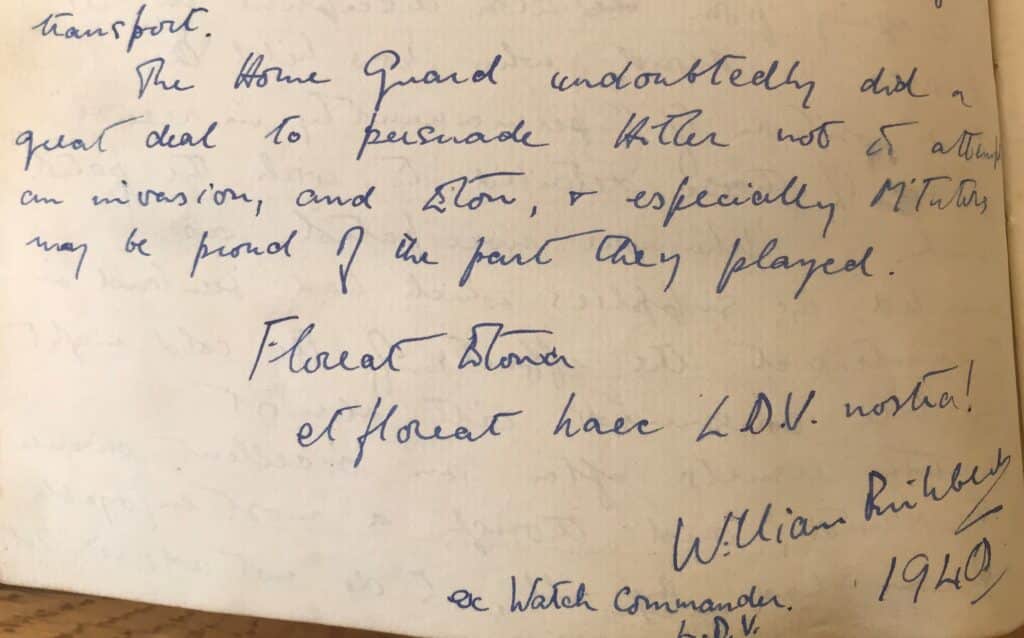 transport.
The Home Guard undoubtedly did a
great deal to persuade Hitler not to attempt
an invasion, and Eton, & especially M'Tutors
may be proud of the part they played.
Floreat Etona
et floreat haec L.D.V. nostra!
William
1940
ex Watch Commander.
L.D.V.